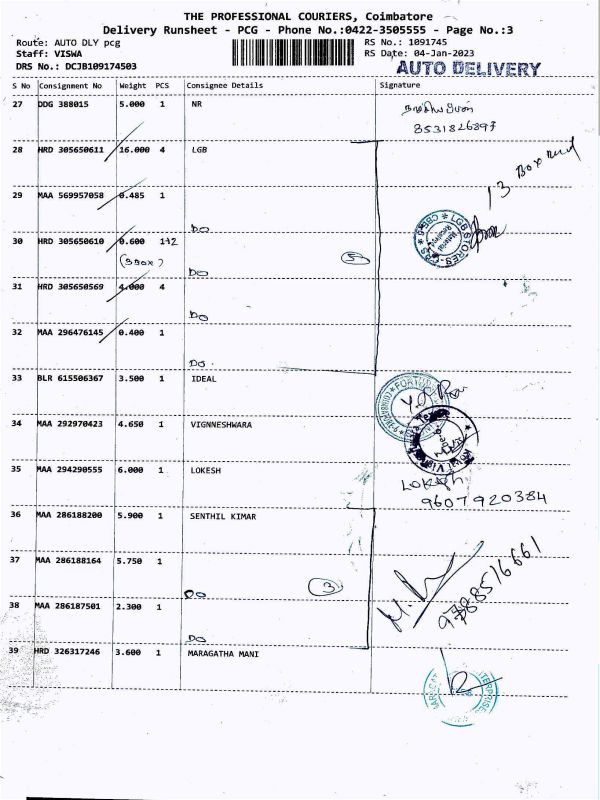 THE PROFESSIONAL COURIERS, Coimbatore
Delivery Runsheet - PCG - Phone No.:0422-3505555 - Page No.:3
Route: AUTO DLY pcg RS No.: 1091745
Staff: VISWA RS Date: 04-Jan-2023
DRS No.: DCJB109174503 AUTO DELIVERY
S No Consignment No Weight PCS Consignee Details Signature
27 DDG 388015 5.000 1 NR
8531826897
28 HRD 305650611 16.000 4 LGB
13 Box
29 MAA 569957058 0.485 1
DO
LGB STORES
Material Received
30 HRD 305650610 0.600 1+2
(3BOX) 5
DO
31 HRD 305650569 4.000 4
DO
32 MAA 296476145 0.400 1
DO.
33 BLR 615506367 3.500 1 IDEAL
34 MAA 292970423 4.650 1 VIGNNESHWARA
35 MAA 294290555 6.000 1 LOKESH
Lokesh
9607920384
36 MAA 286188200 5.900 1 SENTHIL KIMAR
37 MAA 286188164 5.750 1
DO 3
9788516661
38 MAA 286187501 2.300 1
DO
39 HRD 326317246 3.600 1 MARAGATHA MANI